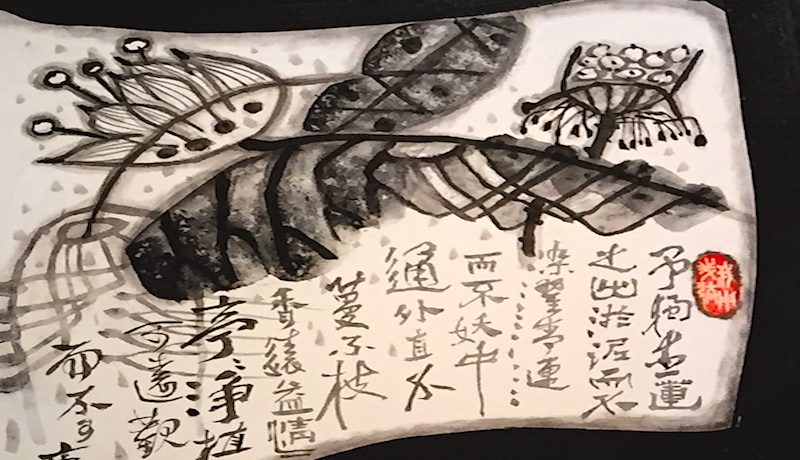 予獨愛蓮
之出淤泥而不
染濯清漣
而不妖中
通外直不
蔓不枝
香遠益清
亭〻淨植
可遠觀
而不可